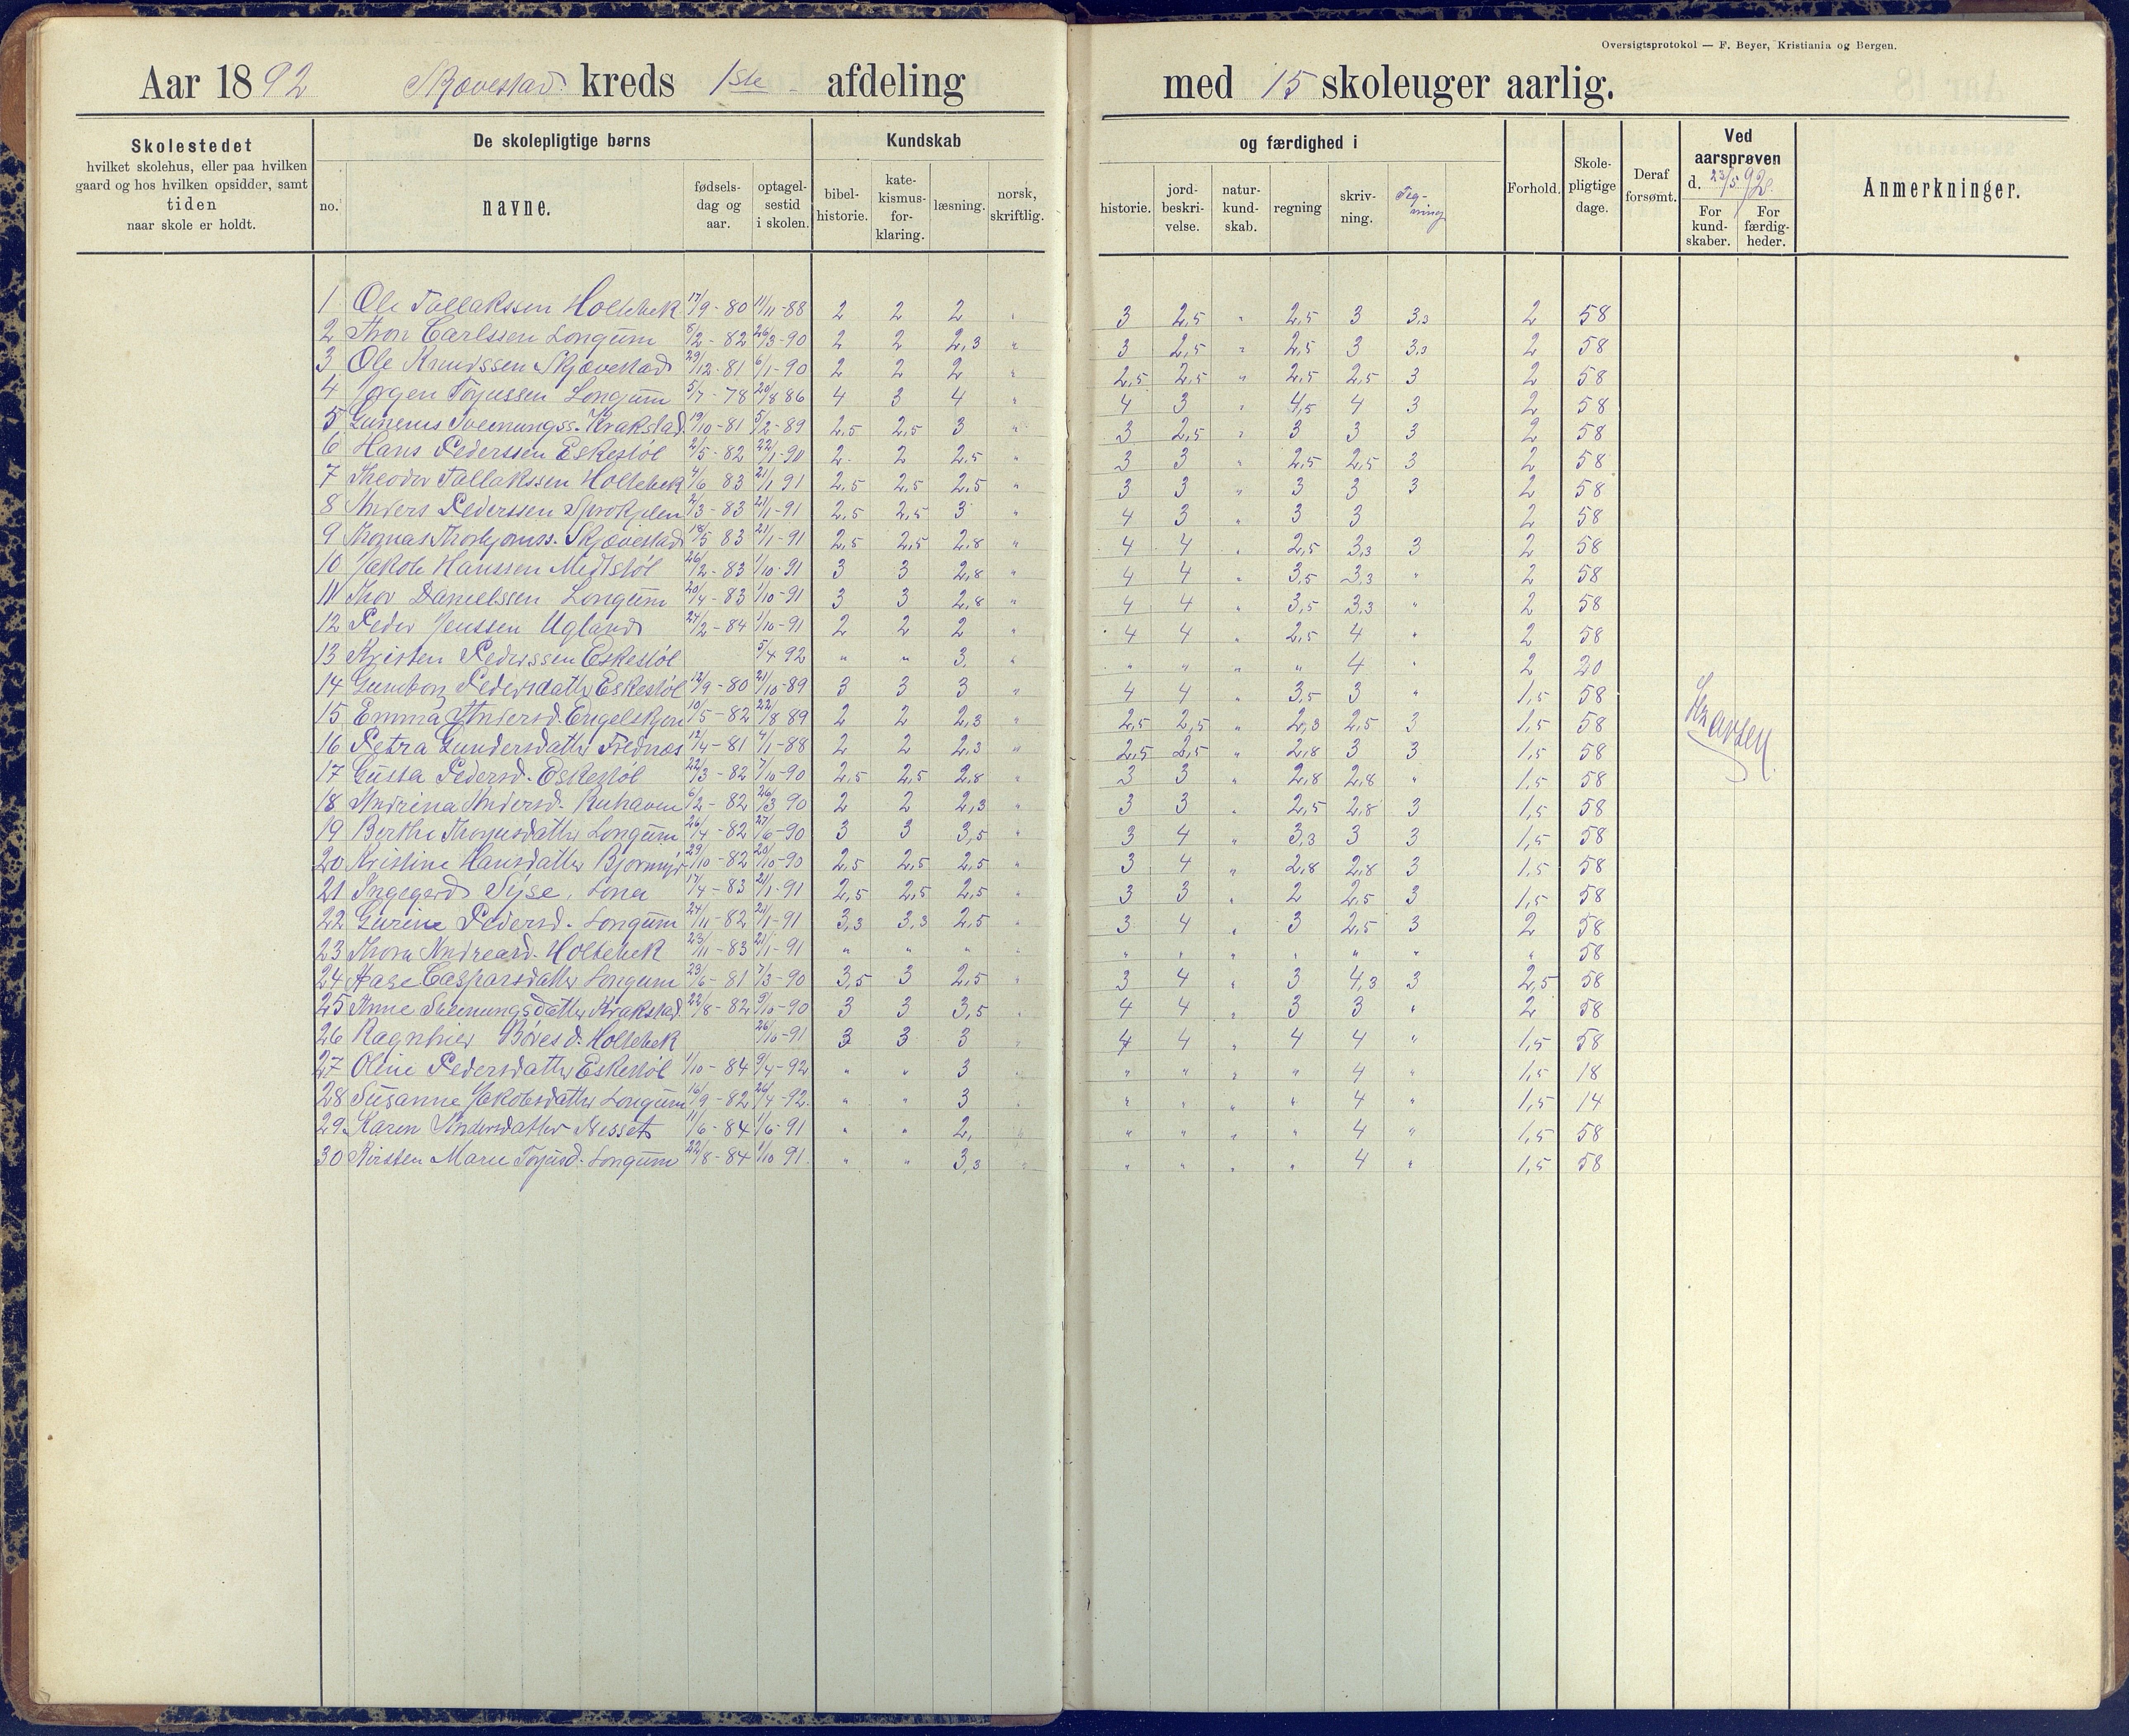 Oversigtsprotokol — F. Beyer, Kristiania og Bergen.
Aar 1892 kreds 1ste afdeling med 15 skoleuger aarlig.
Skolestedet hvilket skolehus, eller paa hvilken gaard og hos hvilken opsidder, samt tiden naar skole er holdt.
De skolepligtige børns
no. navne. fødsels-dag og aar. optagel-sestid i skolen.
Kundskab og færdighed i
bibel-historie. kate-kismus-for-klaring. læsning. norsk, skriftlig. historie. jord-beskri-velse. natur-kund-skab. regning skriv-ning. Teg-ning
Forhold. Skole-pligtige dage. Deraf forsømt.
Ved aarsprøven d. 23/5 92.
For kund-skaber. For færdig-heder.
Anmerkninger.
1 Ole Tallakssen Holtebek 17/9-80 11/11-88 2 2 2 " 3 2,5 " 2,5 3 3,3 2 58
2 Thor Carlssen Longum 8/2-82 26/3-90 2 2 2,3 " 3 2,5 " 2,5 3 3,3 2 58
3 Ole Knudssen Skjævestad 29/12-81 6/1-90 2 2 2 " 2,5 2,5 " 2,5 2,5 3 2 58
4 Jørgen Torjussen Longum 5/7-78 20/8 86 4 3 4 " 4 3 " 4,5 4 3 2 58
5 Gunerus Svenungss. Krakstad 19/10-81 5/2-89 2,5 2,5 3 " 3 2,5 " 3 3 3 2 58
6 Hans Pederssen Eskestøl 2/5-82 22/1-90 2 2 2,5 " 3 3 " 2,5 2,5 3 2 58
7 Theodor Tallakssen Holtebek 4/6 83 21/1 91 2,5 2,5 2,5 " 3 3 " 3 3 3 2 58
8 Anders Pederssen 2/3-83 21/1-91 2,5 2,5 3 " 4 3 " 3 3 2 58
9 Thomas Thorbjørnss. Skjævestad 18/5 83 21/1-91 2,5 2,5 2,8 " 4 4 " 2,5 3,3 3 2 58
10 Jakob Hanssen Midtstøl 26/2-83 1/10-91 3 3 2,8 " 4 4 " 3,5 3,3 " 2 58
11 Thor Danielssen Longum 20/4-83 1/10-91 3 3 2,8 " 4 4 " 3,5 3,3 " 2 58
12 Peder Jenssen Ugland 24/2-84 1/10-91 2 2 2 " 4 4 " 2,5 4 " 2 58
13 Kristen Pederssen Eskestøl 5/4 92 " " 3. " " " " " 4 " 2 20
14 Gunborg Pedersdatter Eskestøl 12/9-80 21/10-89 3 3 3 " 4 4 " 3,5 3 " 1,5 58
15 Emma Andersd. Engelskjøn 10/5-82 22/8 89 2 2 2,3 " 2,5 2,5 " 2,3 2,5 3 1,5 58
16 Petra Gundersdatter Frednes 12/4-81 4/1-88 2 2 2,3 " 2,5 2,5 " 2,8 3 3 1,5 58
17 Gusta Pedersd. Eskestøl 22/3-82 7/10-90 2,5 2,5 2,8 " 3 3 " 2,8 2,8 " 1,5 58
18 Andrina Andersd. 6/2-82 26/3 90 2 2 2,3 " 3 3 " 2,5 2,8 3 1,5 58
19 Berthe Thorjusdatter Longum 26/4-82 27/6-90 3 3 3,5 " 3 4 " 3,3 3 3 1,5 58
20 Kristine Hansdatter Bjørmyr 29/10-82 20/10-90 2,5 2,5 2,5 " 3 4 " 2,8 2,8 3 1,5 58
21 Ingegerd Syse, Lona 17/4-83 21/1-91 2,5 2,5 2,5 " 3 3 " 2 2,5 3 1,5 58
22 Gurine Pedersd. Longum 24/11-82 21/1-91 3,3 3,3 2,5 " 3 4 " 3 2,5 3 2 58
23 Thora Andreasd. Holtebek 23/11-83 21/1-91 " " " " " " " " " " " 58
24 Aase Caspersdatter Longum 23/6-81 7/3-90 3,5 3 2,5 " 3 4 " 3 4,3 3 2,5 58
25 Anne Svenungsdatter Krakstad 22/8-82 9/10-90 3 3 3,5 " 4 4 " 3 3 " 2 58
26 Ragnhild Børesd. Holtebek 26/10-91 3 3 3 " 4 4 " 4 4 " 1,5 58
27 Oline Pedersdatter Eskestøl 1/10-84 9/4-92 " " 3 " " " " " 4 " 1,5 18
28 Susanne Jakobsdatter Longum 16/9-82 26/4-92. " " 3 " " " " " 4 " 1,5 14
29 Karen Andersdatter Nesset 11/6-84 1/6-91 " " 2, " " " " " 4 " 1,5 58
30 Kirsten Marie Torjusd. Longum 22/8-84 1/10 91. " " 3,3 " " " " " 4 " 1,5 58